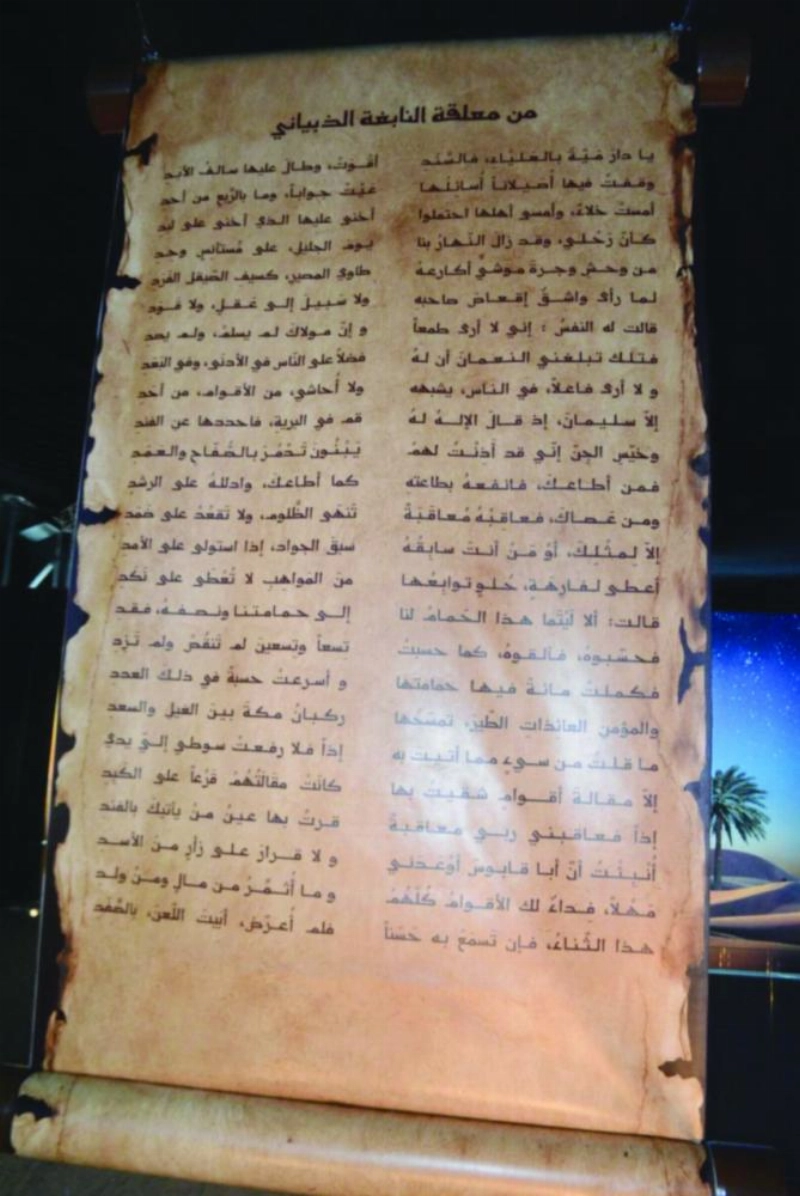 من معلقة النابغة الذبياني
يا دارَ مَيَّةَ بالعَليْاءِ، فالسَّنَدِ أقْوَتْ، وطالَ عليها سالفُ الأبَدِ
وقفتُ فيها أُصَيلاناً أُسائِلُها عَيَّتْ جواباً، وما بالرَّبعِ من أحدِ
أمستْ خلاءً، وأمسى أهلها احتملوا أخنى عليها الذي أخنى على لبد
كأنّ رَحْلي، وقد زالَ النّهارُ بنا يومَ الجليلِ، على مُستأنِسٍ وحدِ
من وحشِ وجرةَ مَوْشيٍّ أكارعهُ طاوي المصيرِ، كسيفِ الصّيقل الفَرَدِ
لما رأى واشقٌ إقعاصَ صاحبه ولا سَبيلَ إلى عَقلٍ، ولا قَوَدِ
قالت له النفسُ : إني لا أرى طمعاً و إنّ مولاكَ لم يسلمْ، ولم يصد
فتلك تبلغني النعمانَ أن لهُ فضلاً على النّاس في الأدنَى، وفي البَعَدِ
و لا أرى فاعلاً، في الناس، يشبهه ولا أُحاشي، من الأقوام، من أحد
إلاّ سليمانَ، إذ قالَ الإلهُ لهُ قم في البرية، فاحددها عن الفند
وخيّسِ الجِنّ إنّي قد أَذِنْتُ لهمْ يَبْنُونَ تَدْمُرَ بالصُّفّاحِ والعَمَدِ
فمن أطاعكَ، فانفعهُ بطاعتهِ كما أطاعكَ، وادللهُ على الرشدِ
ومن عَصاكَ، فعاقبْهُ مُعاقَبَةً تَنْهَى الظَّلومَ، ولا تَقعُدْ على ضَمَدِ
إلاّ لِمثْلِكَ، أوْ مَنْ أنتَ سابِقُهُ سبقَ الجواد، إذا استولى على الأمدِ
أعطى لفارِهَةٍ، حُلوٍ توابِعُها منَ المَواهِبِ لا تُعْطَى على نَكَدِ
قالت: ألا لَيْتَما هذا الحَمامُ لنا إلى حمامتنا ونصفهُ، فقد
فحسّبوهُ، فألفوهُ، كما حسبتْ تسعاً وتسعينَ لم تَنقُصْ ولم تَزِدِ
فكملتْ مائةً فيها حمامتها و أسرعتْ حسبةً في ذلكَ العددِ
والمؤمنِ العائذاتِ الطّيرِ، تمسَحُها ركبانُ مكةَ بينَ الغيلِ والسعدِ
ما قلتُ من سيءٍ مما أتيتَ به إذاً فلا رفعتْ سوطي إليّ يدي
إلاّ مقالةَ أقوامٍ شقيتُ بها كانَتْ مقَالَتُهُمْ قَرْعاً على الكَبِدِ
إذاً فعاقبني ربي معاقبةً قرتْ بها عينُ منْ يأتيكَ بالفندِ
أُنْبِئْتُ أنّ أبا قابوسَ أوْعَدَني و لا قرارَ على زأرٍ منَ الأسدِ
مَهْلاً، فداءٌ لك الأقوامُ كُلّهُمُ و ما أُثَمِّرُ من مالٍ ومنْ ولدِ
هذا الثّناءُ، فإن تَسمَعْ به حَسَناً فلم أُعرِّضْ، أبَيتَ اللّعنَ، بالصَّفَدِ